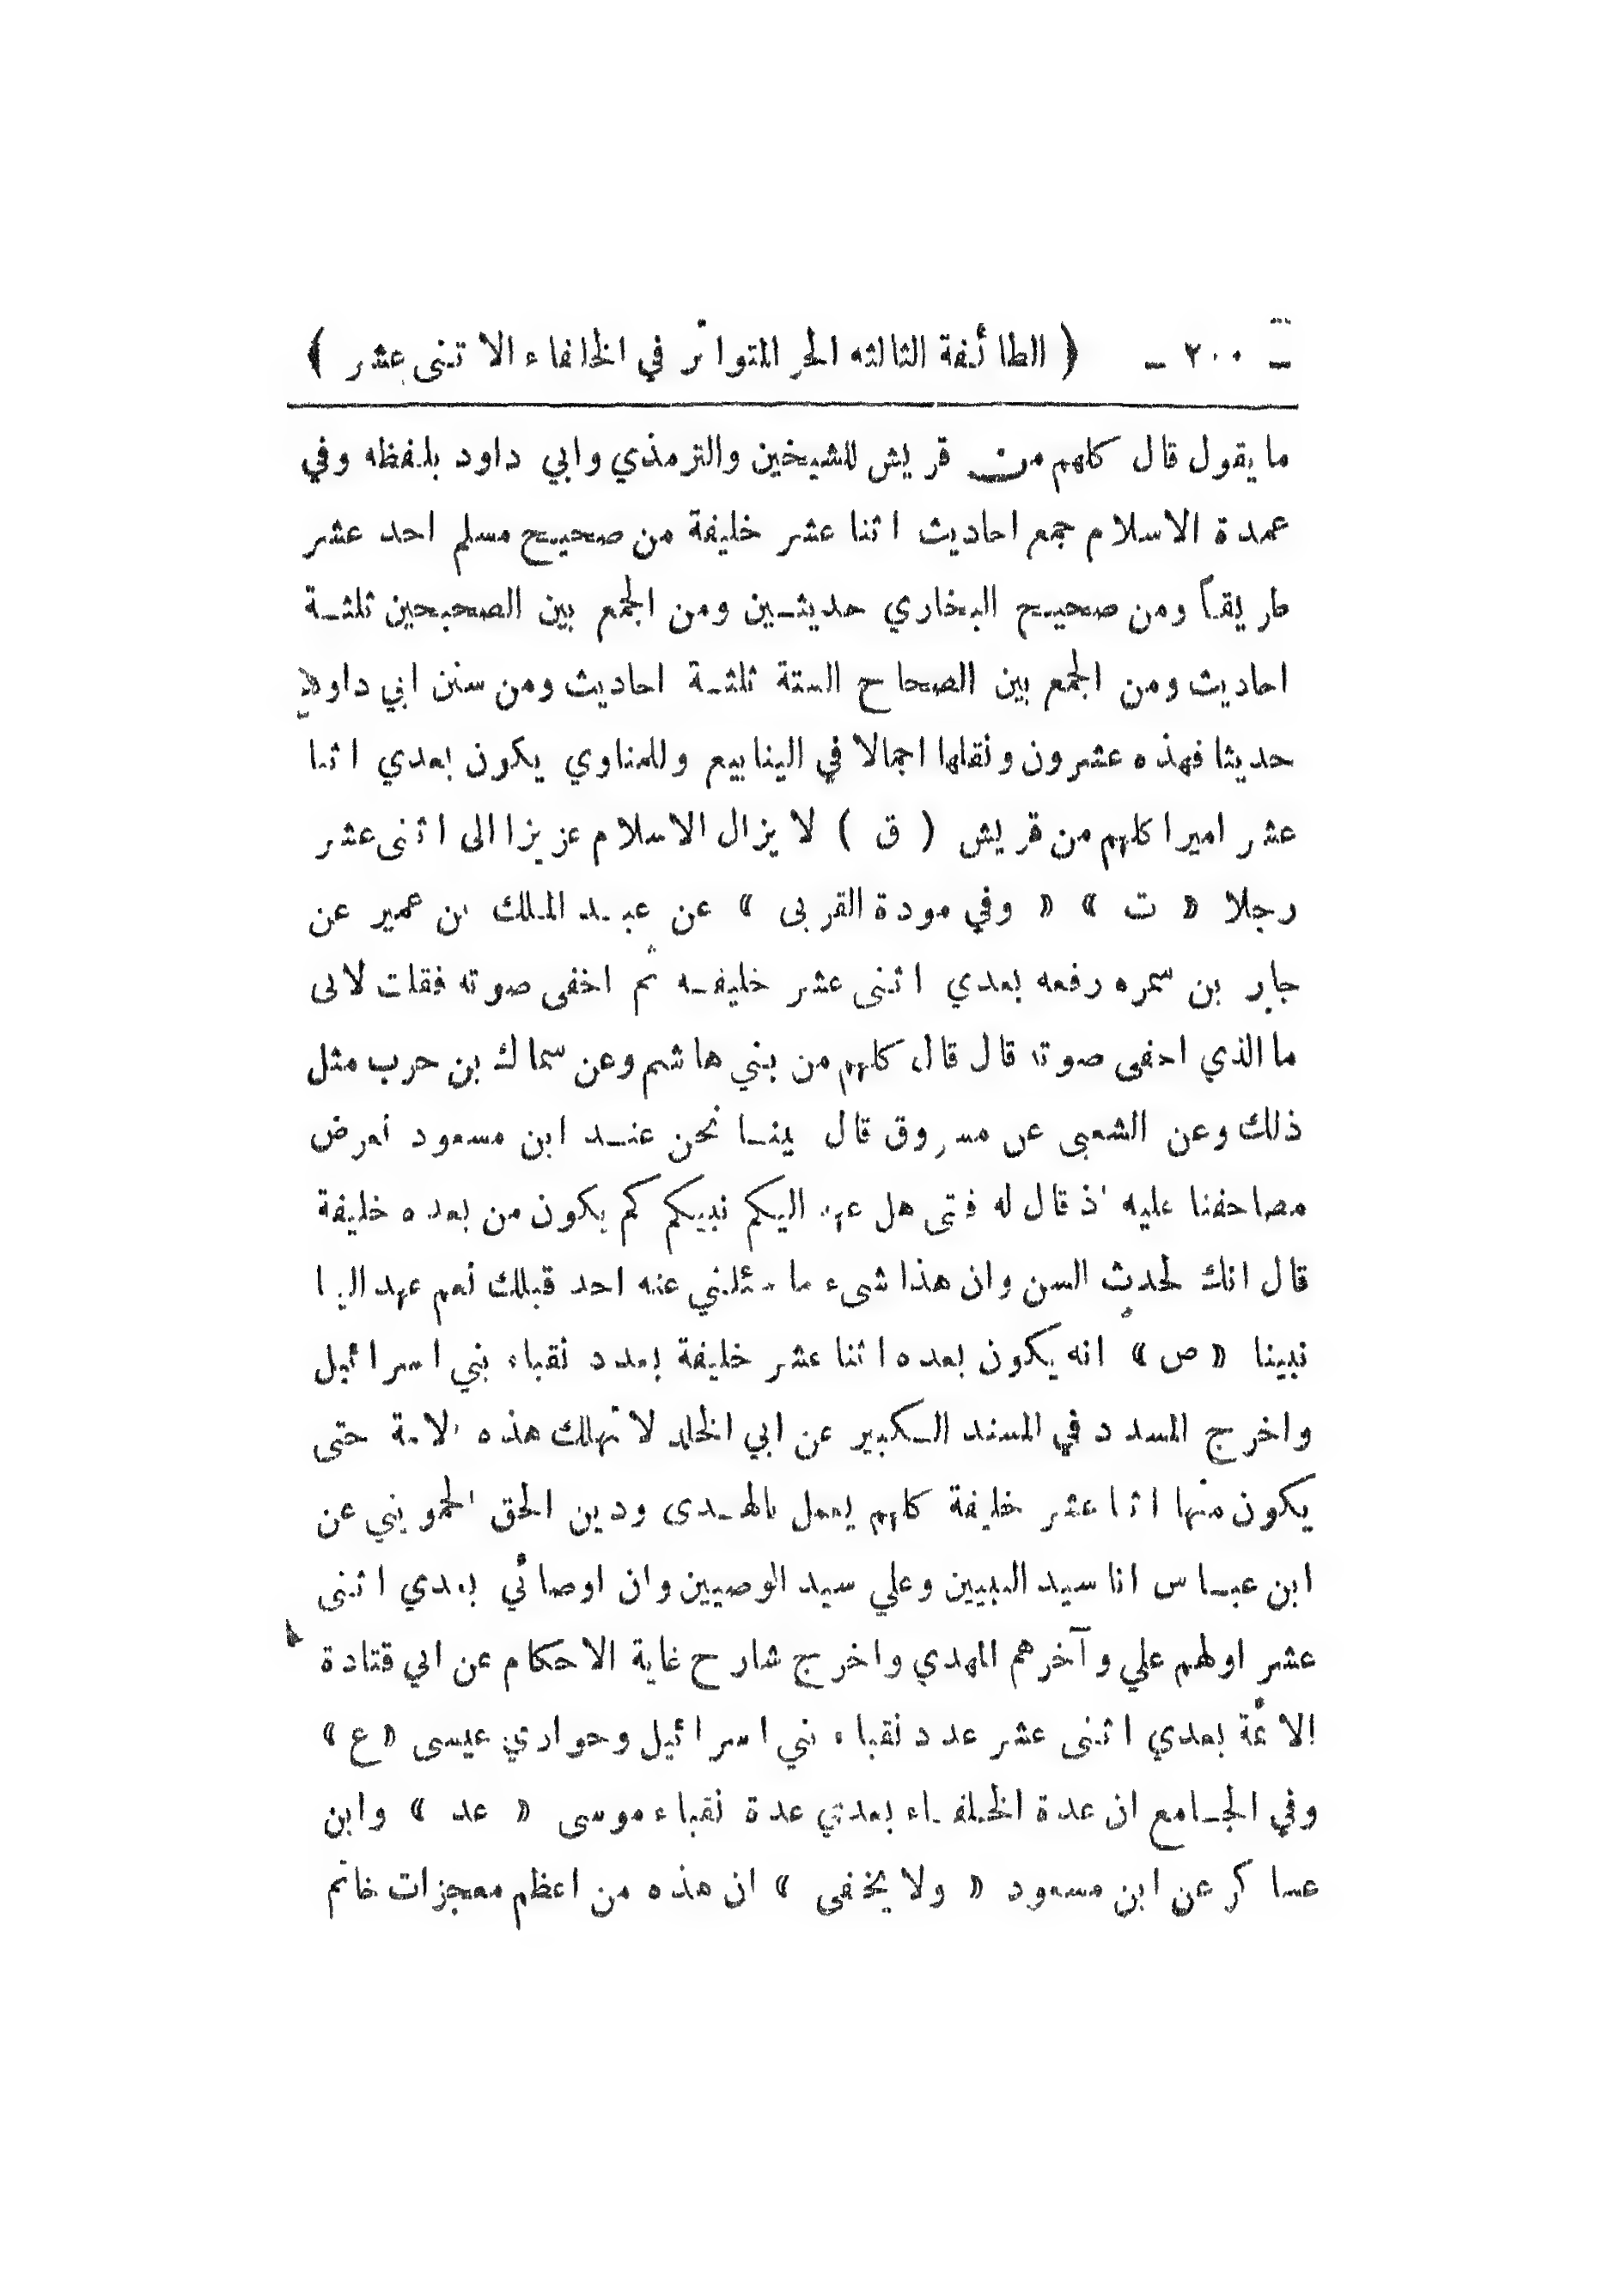 ـ ٢٠٠ ـ ﴿ الطائفة الثالثه الخبر المتواتر في الخلفاء الاثنى عشر ﴾
ما يقول قال كلهم من قريش للشيخين والترمذي وابي داود بلفظه وفي
عمدة الاسلام جمع احاديث اثنا عشر خليفة من صحيح مسلم احد عشر
طريقاً ومن صحيح البخاري حديثـين ومن الجمع بين الصحيحين ثلثـة
احاديث ومن الجمع بين الصحاح الستة ثلثـة احاديث ومن سنن ابي داود
حديثا فهذه عشرون ونقلها اجمالا في الينابيع وللمناوي يكون بعدي اثنا
عشر اميرا كلهم من قريش ( ق ) لا يزال الاسلام عزيزا الى اثنى عشر
رجلا « ت » « وفي مودة القربى » عن عبـد الملك بن عمير عن
جابر بن سمره رفعه بعدي اثنى عشر خليفـه ثم اخفى صوته فقلت لابى
ما الذي اخفى صوته قال قال كلهم من بني هاشم وعن سماك بن حرب مثل
ذلك وعن الشعبى عن مسروق قال بينـا نحن عنـد ابن مسعود نعرض
مصاحفنا عليه اذ قال له فتى هل عهد اليكم نبيكم كم يكون من بعده خليفة
قال انك لحدث السن وان هذا شىء ما سئلني عنه احد قبلك نعم عهد الينا
نبينا « ص » انه يكون بعده اثنا عشر خليفة بعدد نقباء بني اسرائيل
واخرج المسدد في المسند الـكبير عن ابي الخلد لا تهلك هذه الامة حتى
يكون منها اثنا عشر خليفة كلهم يعمل بالهـدى ودين الحق الحمويني عن
ابن عبـاس انا سيد النبيين وعلي سيد الوصيين وان اوصيائي بعدي اثنى
عشر اولهم علي وآخرهم المهدي واخرج شارح غاية الاحكام عن ابي قتادة
الائمة بعدي اثنى عشر عدد نقباء بني اسرائيل وحواري عيسى « ع »
وفي الجـامع ان عدة الخلفـاء بعدي عدة نقباء موسى « عد » وابن
عساكر عن ابن مسعود « ولا يخفى » ان هذه من اعظم معجزات خاتم